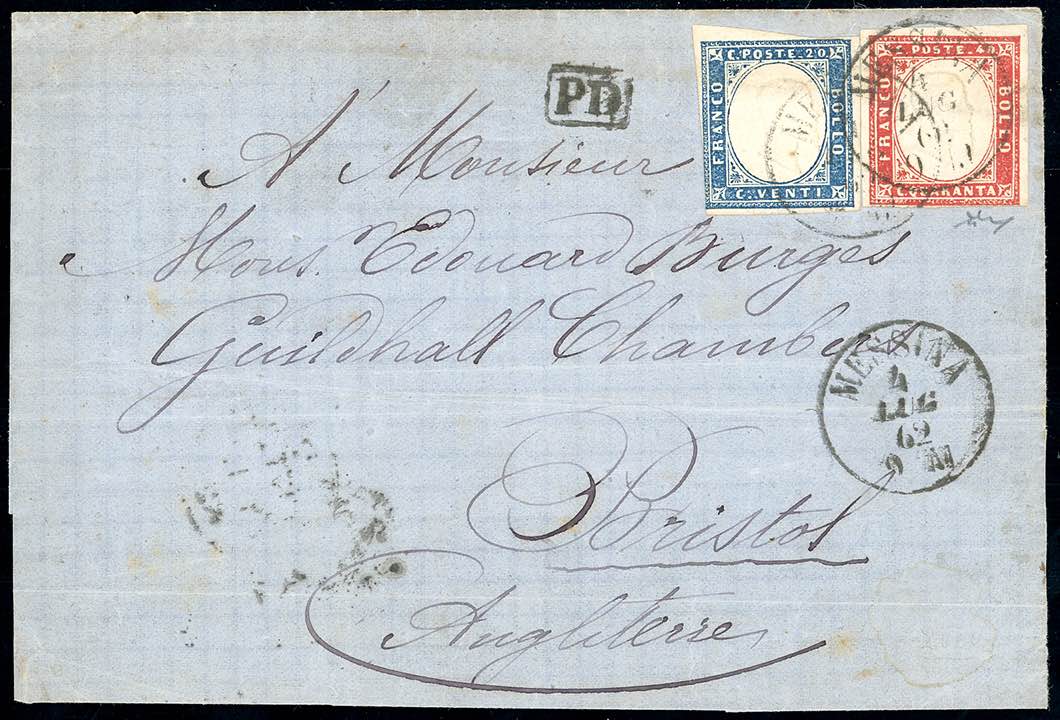 PD
C. POSTE. 20
FRANCO
BOLLO
C. VENTI
POSTE. 40
FRANCO
BOLLO
LUG
A' Monsieur
Mons. Edouard Burges
Guildhall Chambers
Bristol
Angleterre
MESSINA
4
LUG
62
9 M